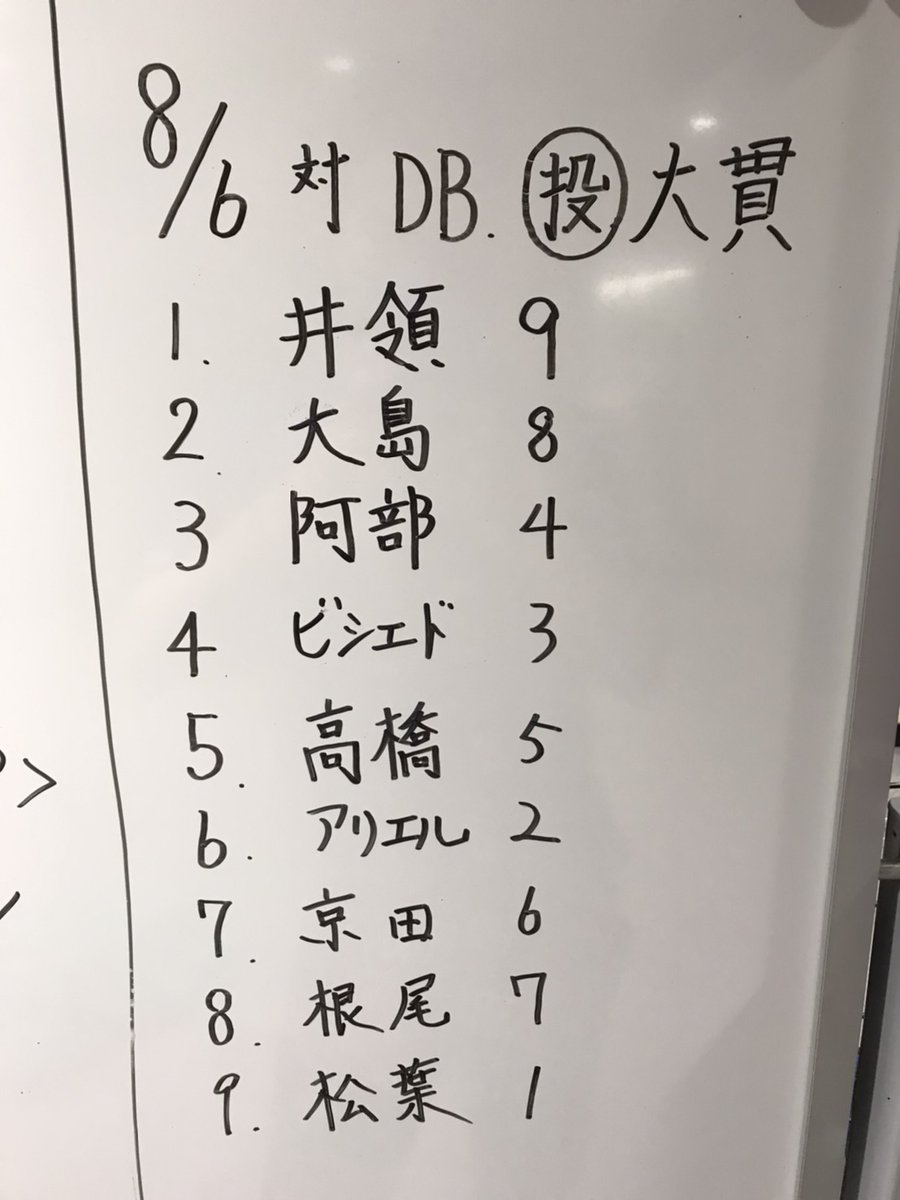 8/6 対 DB. 投 大貫
1. 井領 9
2. 大島 8
3 阿部 4
4 ビシエド 3
5. 高橋 5
6. アリエル 2
7. 京田 6
8. 根尾 7
9. 松葉 1